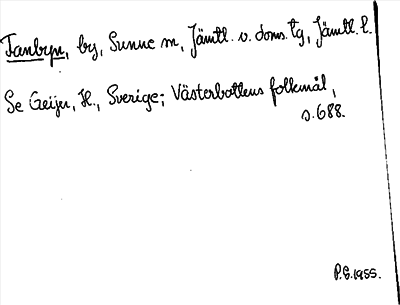 Tanbyn, by, Sunne sn, Jämtl. v. doms. tg, Jämtl. l.
Se Geijer, H., Sverige; Västerbottens folkmål,
s. 688.
P.G. 1955.